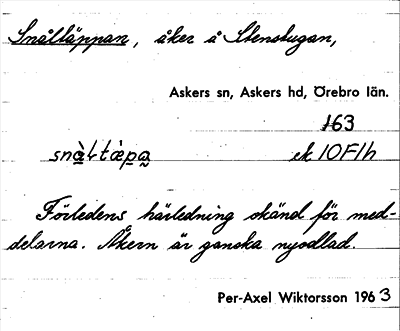 Snåltäppan, åker å Stenstugan,
Askers sn, Askers hd, Örebro län.
163
snà̀ltɛ̀pa ek 10F1h
Förledens härledning okänd för med-
delarna. Åkern är ganska nyodlad.
Per-Axel Wiktorsson 1963